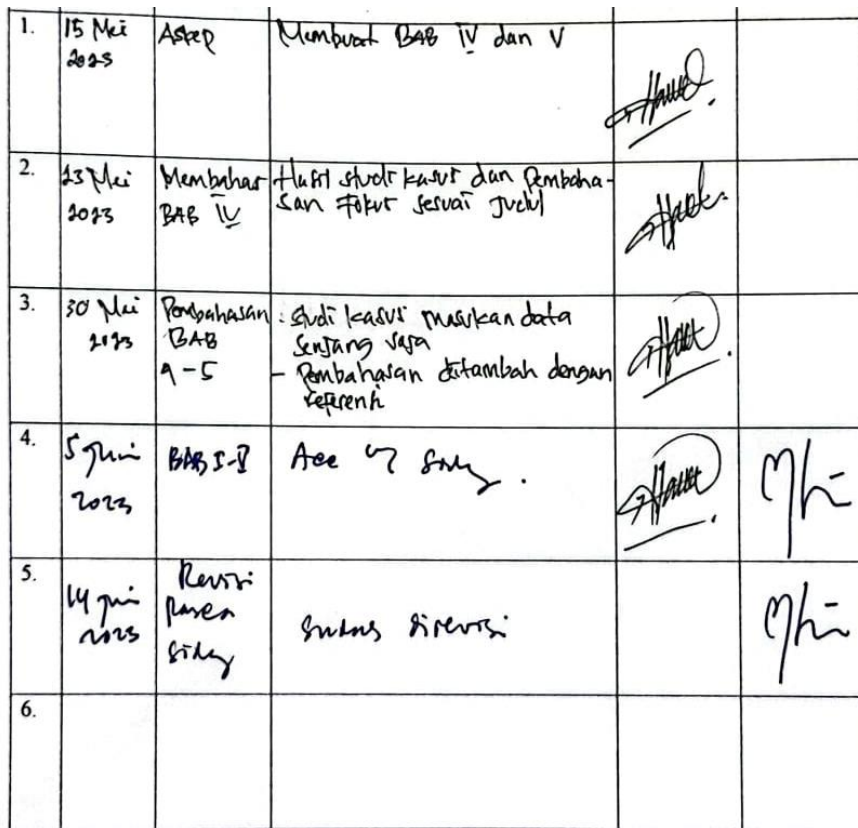 1.
15 Mei
2023
Askep
Membuat BAB IV dan V
2.
23 Mei
2023
Membahas
BAB IV
Hasil studi kasus dan Pembaha-
san Fokus sesuai Judul
3.
30 Mei
2023
Pembahasan
BAB
4-5
: Studi kasus masukan data
senjang saja
- Pembahasan ditambah dengan
referensi
4.
5 Juni
2023
BAB I-V
Acc
5.
14 Juni
2023
Revisi
pasca
sidang
sudah direvisi
6.